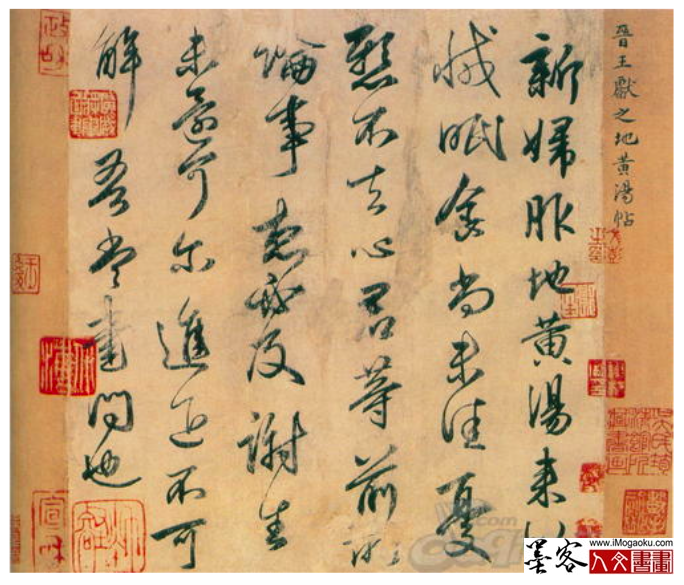 晉王獻之地黃湯帖
新婦服地黃湯来似
減眠食尚未佳憂
懸不去心君等前所
論事想及謝生
未還可尔進退不可
解吾當書問也
宣和
墨客
人文書畫
www.iMogaoku.com